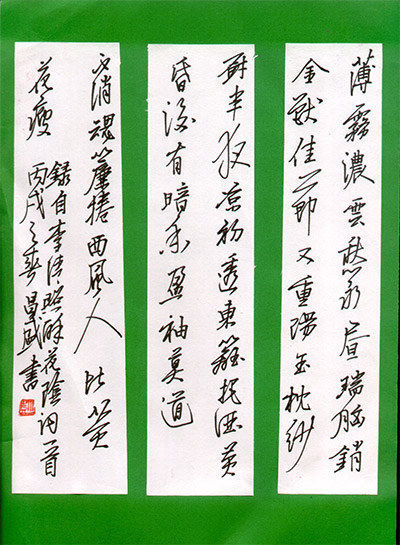 薄霧濃雲愁永昼瑞腦銷
金獸佳節又重陽玉枕紗
厨半夜凉初透東籬把酒黄
昏後有暗香盈袖莫道
不消魂簾捲西風人比黄
花瘦
錄自李清照醉花陰詞一首
丙戌之春昌書